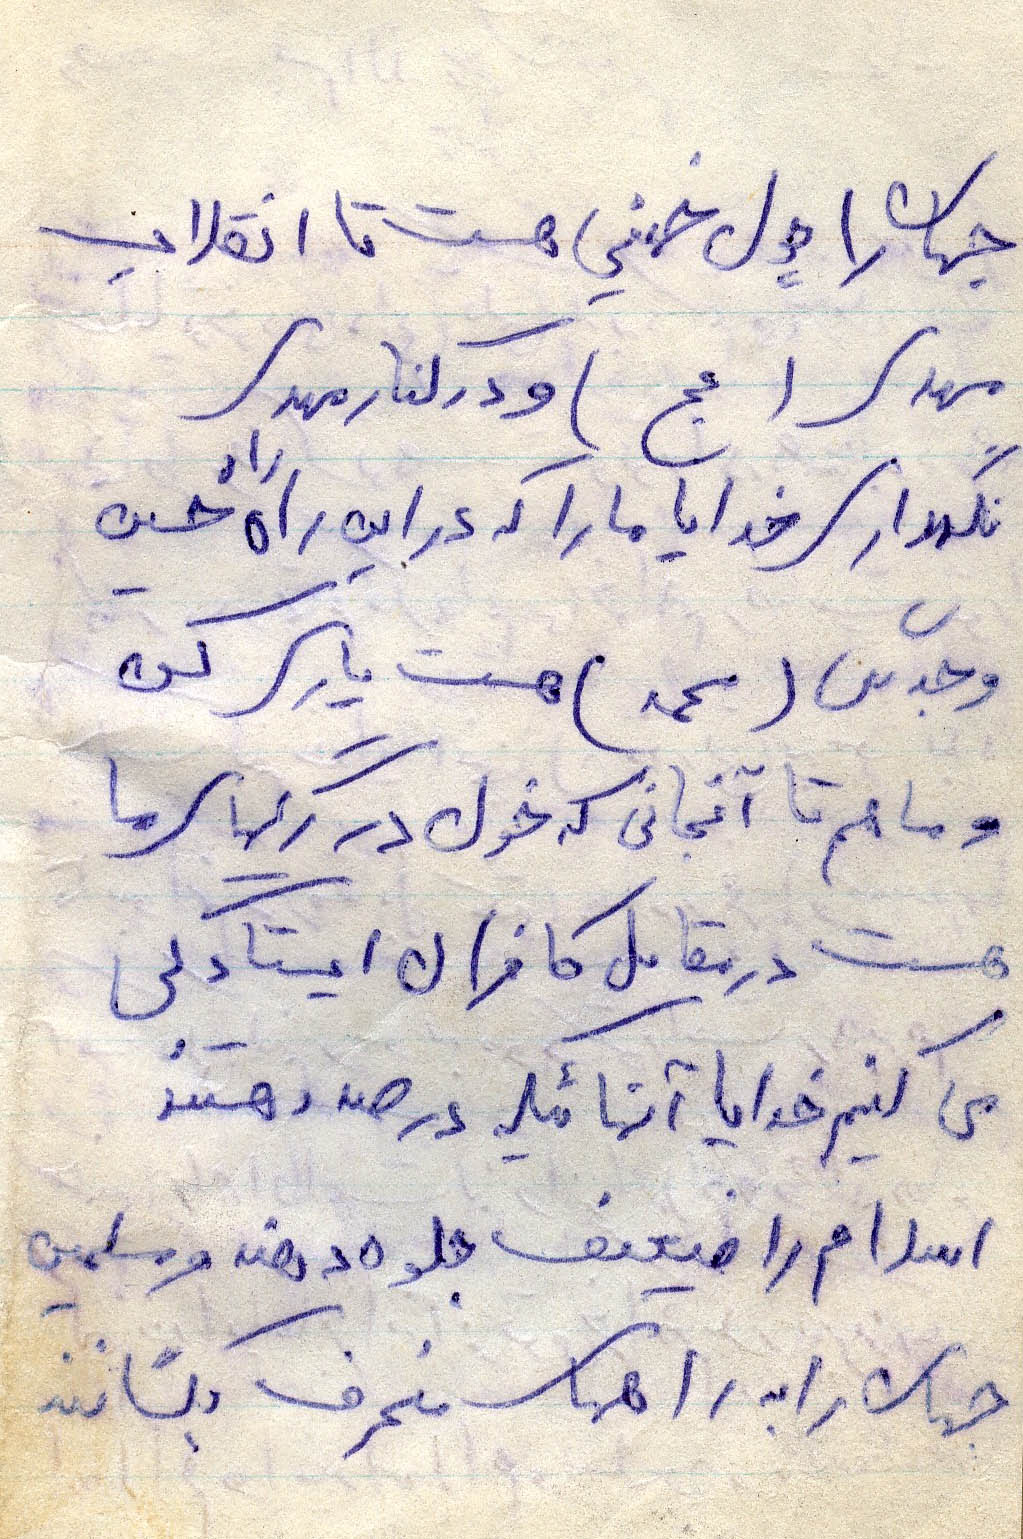 جهان را چون خمینی هست تا انقلاب
مهدی (عج) و در کنار مهدی
نگهداری خدایا ما را که در این راه راه حسین
و جدش (محمد) هست یاری کن
و ما هم تا آنجائی که خون در رگهای ما
هست در مقابل کافران ایستادگی
می کنیم خدایا آنهائیکه در صدد هستند
اسلام را ضعیف جلوه دهند و مسلمین
جهان را به راههای منحرف بکشانند